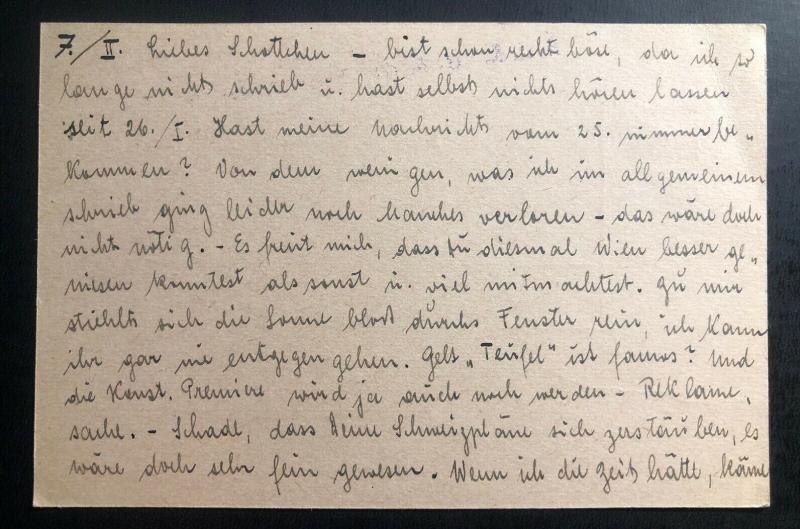 7./II. Liebes Schattchen – bist schon recht böse, da ich so
lange nichts schrieb u. hast selbst nichts hören lassen
seit 26./I. Hast meine Nachricht vom 25. nimmer be„
kommen? Von dem wenigen, was ich im allgemeinen
schrieb ging leider noch Manches verloren – das wäre doch
nicht nötig. – Es freut mich, dass Du diesmal Wien besser ge„
niesen konntest als sonst u. viel mitmachtest. Zu mir
stiehlt sich die Sonne bloß durchs Fenster rein, ich kann
ihr gar nie entgegen gehen. Gelt „Teufel" ist famos? Und
die Konst. Premiere wird ja auch noch werden – Reklame„
sache. – Schade, dass Deine Schweizpläne sich zerstäuben, es
wäre doch sehr fein gewesen. Wenn ich die Zeit hätte, käme